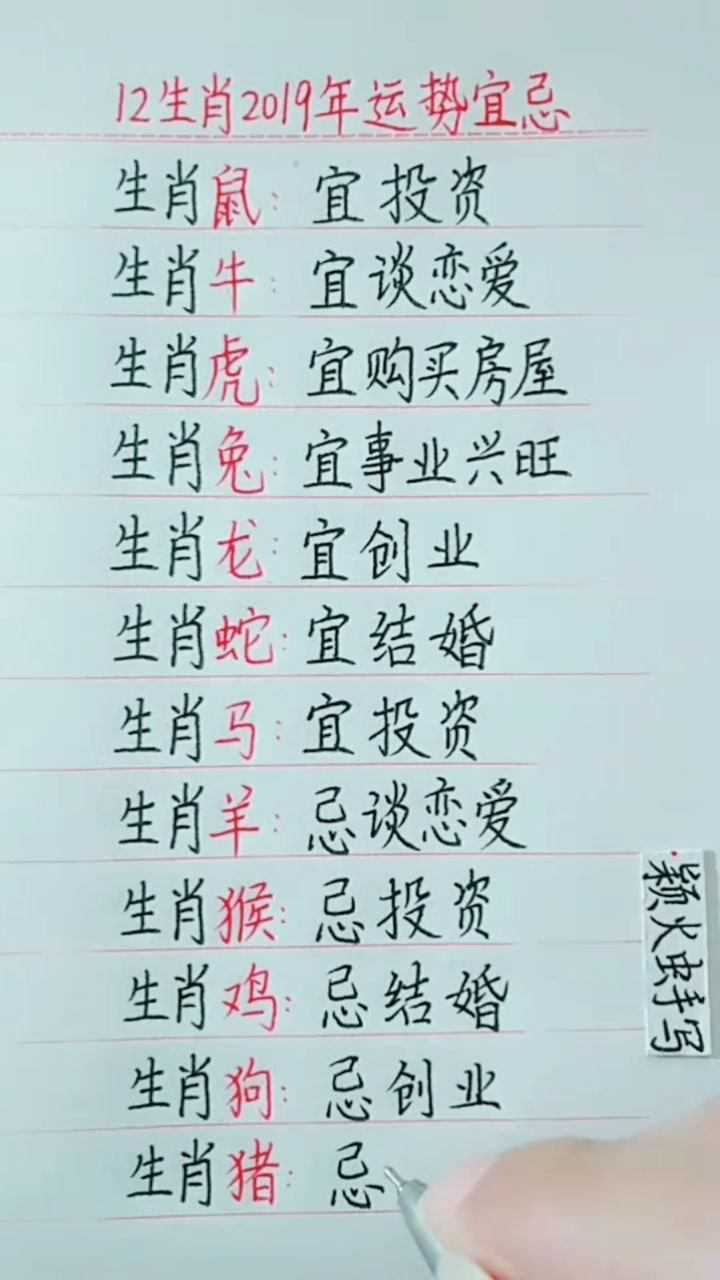 12生肖2019年运势宜忌
生肖鼠: 宜投资
生肖牛: 宜谈恋爱
生肖虎: 宜购买房屋
生肖兔: 宜事业兴旺
生肖龙: 宜创业
生肖蛇: 宜结婚
生肖马: 宜投资
生肖羊: 忌谈恋爱
生肖猴: 忌投资
生肖鸡: 忌结婚
生肖狗: 忌创业
生肖猪: 忌
颖火虫手写